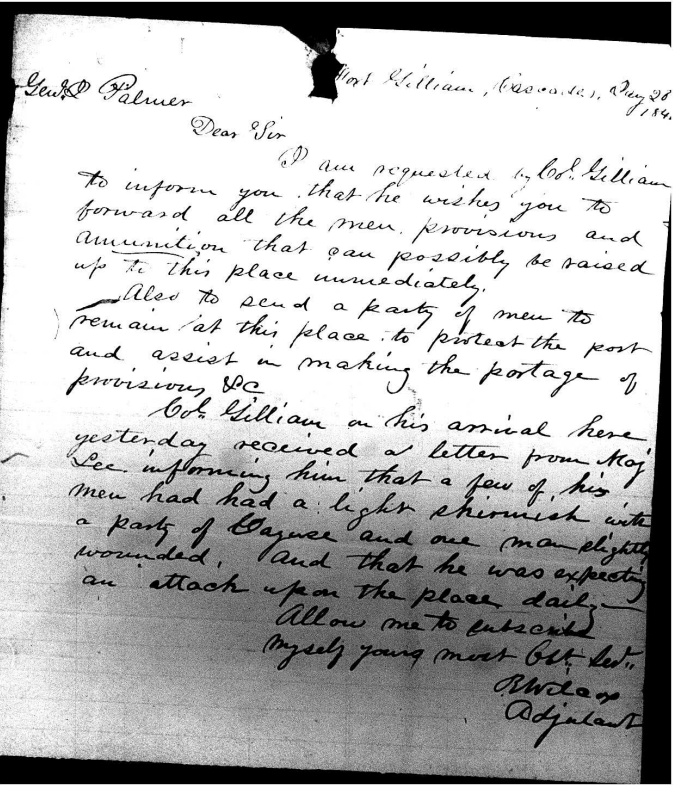 Fort Gilliam, Cascades, Jany 28
184
Genl. J Palmer
Dear Sir
I am requested by Col. Gilliam
to inform you that he wishes you to
forward all the men, provisions and
amunition that can possibly be raised
up to this place immediately.
Also to send a party of men to
remain at this place to protect the post
and assist in making the portage of
provisions &C
Col. Gilliam on his arrival here
yesterday received a letter from Maj
Lee informing him that a few of his
men had had a light skirmish with
a party of Cayuse and one man slightly
wounded, and that he was expecting
an attack upon the place daily
Allow me to subscribe
myself yours most Obt. Sevt.
Wilcox
Adjutant